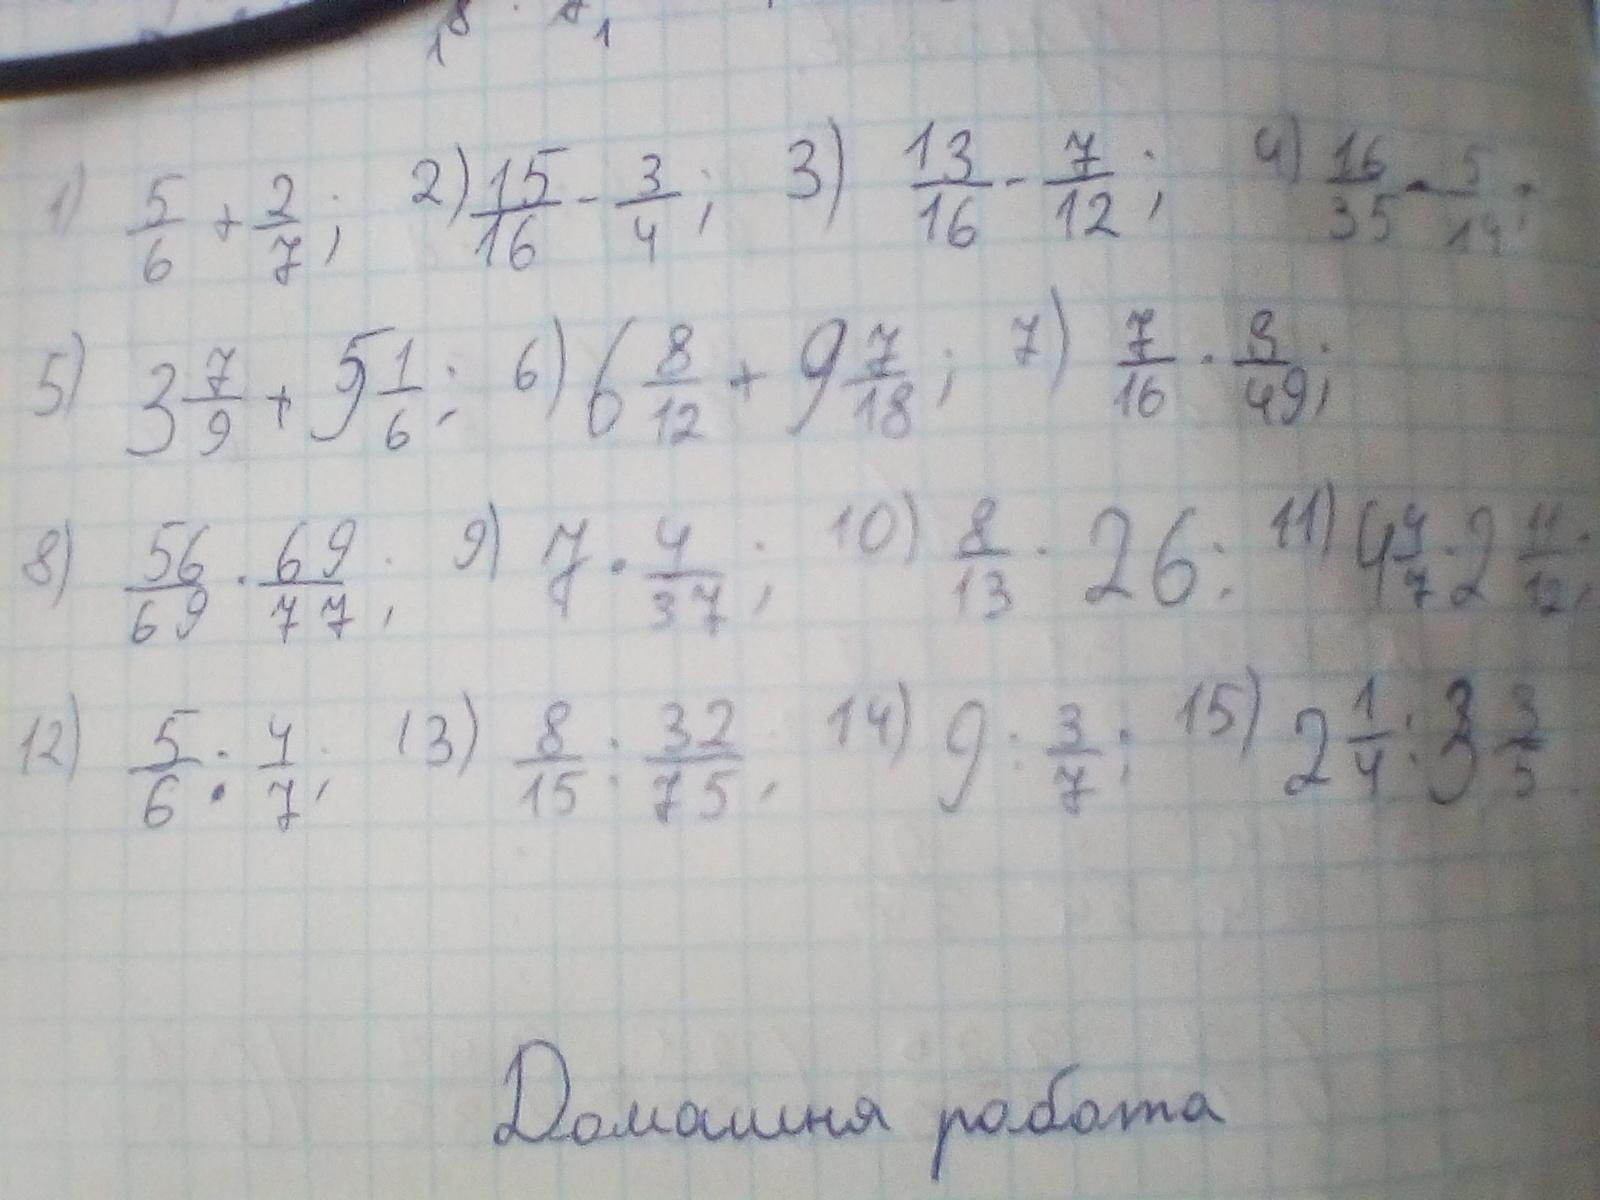 1) 5/6 + 2/7; 2) 15/16 - 3/4; 3) 13/16 - 7/12; 4) 16/35 - 5/14;
5) 3 7/9 + 5 1/6; 6) 6 8/12 + 9 7/18; 7) 7/16 · 8/49;
8) 56/69 · 69/77; 9) 7 · 4/37; 10) 8/13 · 26; 11) 4 4/7 · 2 11/12;
12) 5/6 : 4/7; 13) 8/15 : 32/75; 14) 9 : 3/7; 15) 2 1/4 : 3 3/5.
Домашня работа